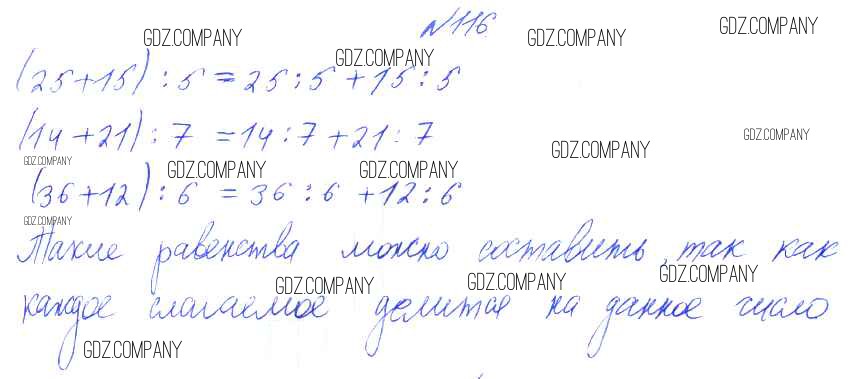 №116
(25+15) : 5 = 25 : 5 + 15 : 5
(14+21) : 7 = 14 : 7 + 21 : 7
(36+12) : 6 = 36 : 6 + 12 : 6
Такие равенства можно составить, так как
каждое слагаемое делится на данное число
GDZ.COMPANY
GDZ.COMPANY
GDZ.COMPANY
GDZ.COMPANY
GDZ.COMPANY
GDZ.COMPANY
GDZ.COMPANY
GDZ.COMPANY
GDZ.COMPANY
GDZ.COMPANY
GDZ.COMPANY
GDZ.COMPANY
GDZ.COMPANY
GDZ.COMPANY